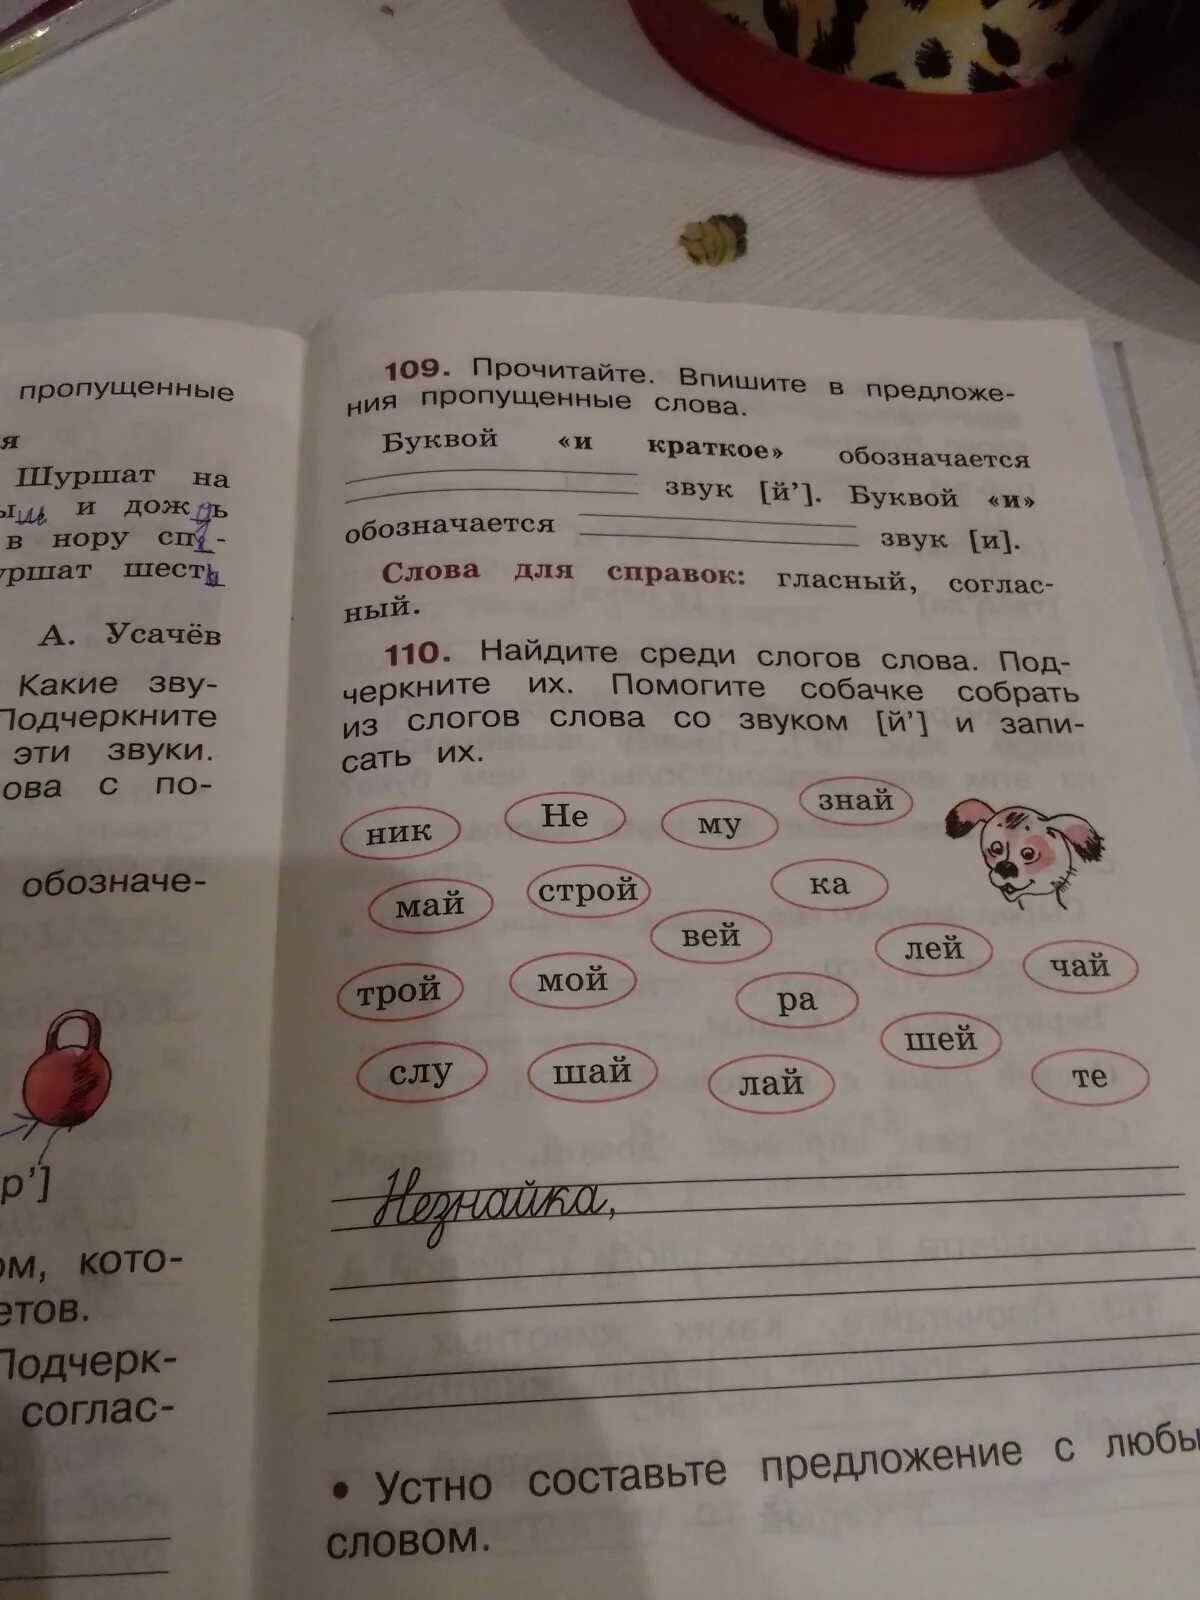 пропущенные
я
Шуршат на
и дождь
в нору
шесть
А. Усачёв
Какие зву-
Подчеркните
эти звуки.
ова с по-
обозначе-
р’]
ом, кото-
етов.
Подчерк-
соглас-
109. Прочитайте. Впишите в предложе-
ния пропущенные слова.
Буквой «и краткое» обозначается
звук [й’]. Буквой «и»
обозначается звук [и].
Слова для справок: гласный, соглас-
ный.
110. Найдите среди слогов слова. Под-
черкните их. Помогите собачке собрать
из слогов слова со звуком [й’] и запи-
сать их.
ник Не му знай
май строй ка
вей лей чай
трой мой ра
слу шай лай шей те
Незнайка,
• Устно составьте предложение с любы
словом.